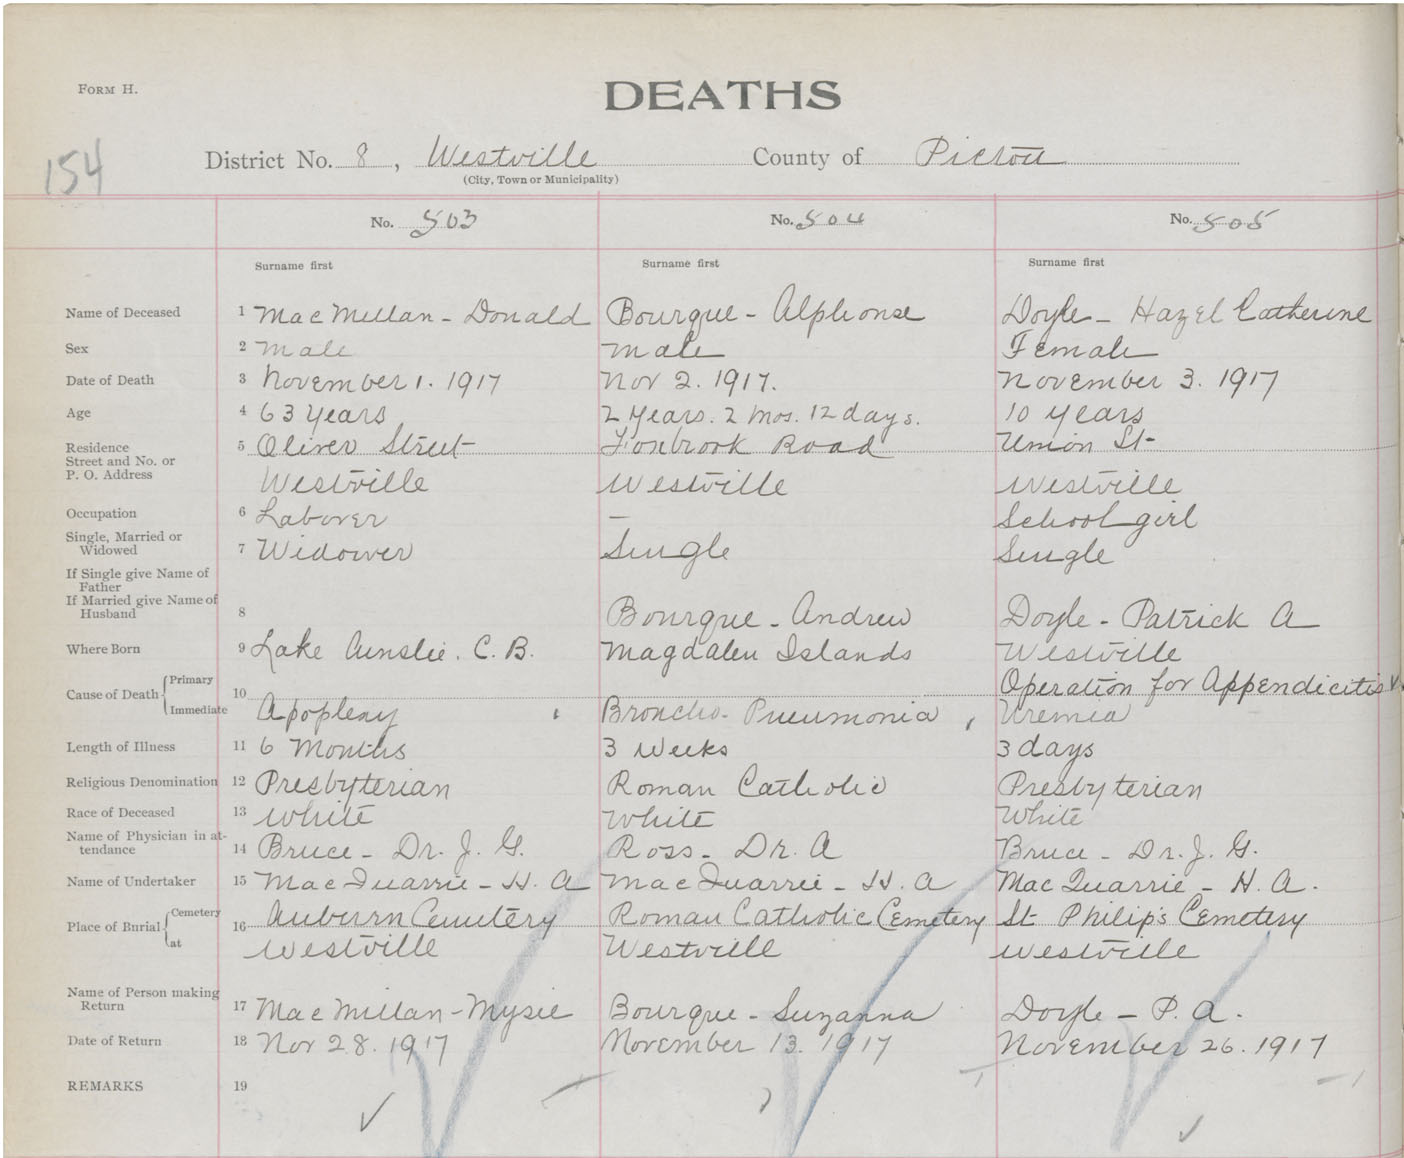 FORM H.
DEATHS
154
District No. 8, Westville County of Pictou
(City, Town or Municipality)
No. 503 No. 504 No. 505
Surname first Surname first Surname first
Name of Deceased 1 MacMillan - Donald Bourque - Alphonse Doyle - Hazel Catherine
Sex 2 Male Male Female
Date of Death 3 November 1. 1917 Nov 2. 1917. November 3. 1917
Age 4 63 years 2 Years. 2 mos. 12 days. 10 years
Residence 5 Oliver Street Foxbrook Road Union St
Street and No. or
P. O. Address Westville Westville Westville
Occupation 6 Laborer — School girl
Single, Married or
Widowed 7 Widower Single Single
If Single give Name of
Father
If Married give Name of
Husband 8 Bourque - Andrew Doyle - Patrick A
Where Born 9 Lake Ainslie. C. B. Magdalen Islands Westville
Cause of Death Primary 10 Operation for Appendicitis
Immediate Apoplexy Broncho-Pneumonia Uremia
Length of Illness 11 6 Months 3 Weeks 3 days
Religious Denomination 12 Presbyterian Roman Catholic Presbyterian
Race of Deceased 13 White White White
Name of Physician in at-
tendance 14 Bruce - Dr. J. G. Ross - Dr. A Bruce - Dr. J. G.
Name of Undertaker 15 MacQuarrie - H. A MacQuarrie - H. A MacQuarrie - H. A.
Place of Burial Cemetery 16 Auburn Cemetery Roman Catholic Cemetery St Philip's Cemetery
at Westville Westville Westville
Name of Person making
Return 17 MacMillan - Mysie Bourque - Suzanna Doyle - P. A.
Date of Return 18 Nov 28. 1917 November 13. 1917 November 26. 1917
REMARKS 19